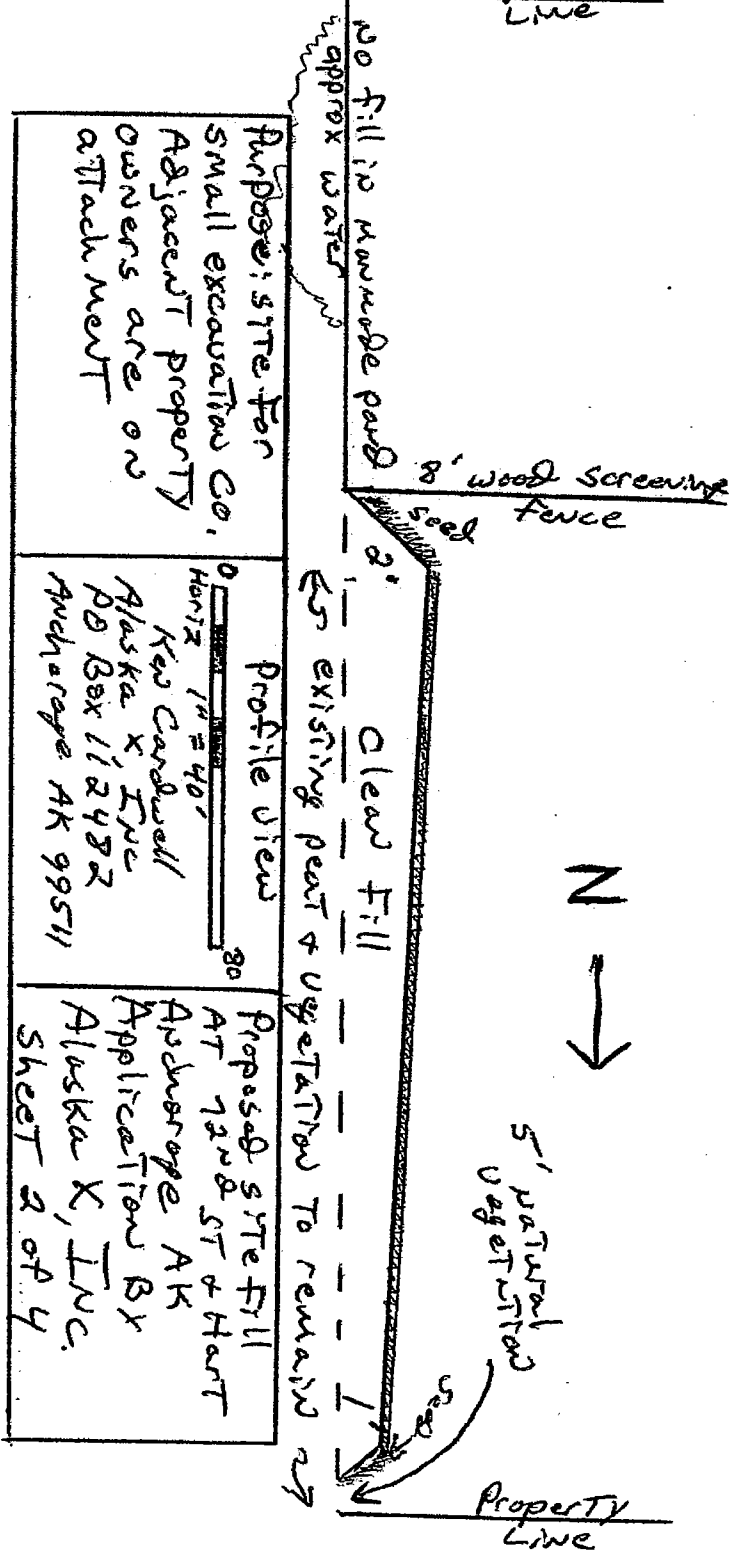 Line
No fill in manmade pond
approx water
8' wood screening
fence
seed
2'
Clean Fill
← existing peat & vegetation to remain →
N
5' natural
vegetation
seed
1'
Property
Line
Purpose: site for
small excavation Co.
Adjacent property
owners are on
attachment
Profile View
0
80
Horiz 1" = 40'
Ken Cardwell
Alaska X, Inc
PO Box 112482
Anchorage AK 99511
Proposed site fill
AT 72nd ST & Hart
Anchorage AK
Application By
Alaska X, INC.
Sheet 2 of 4